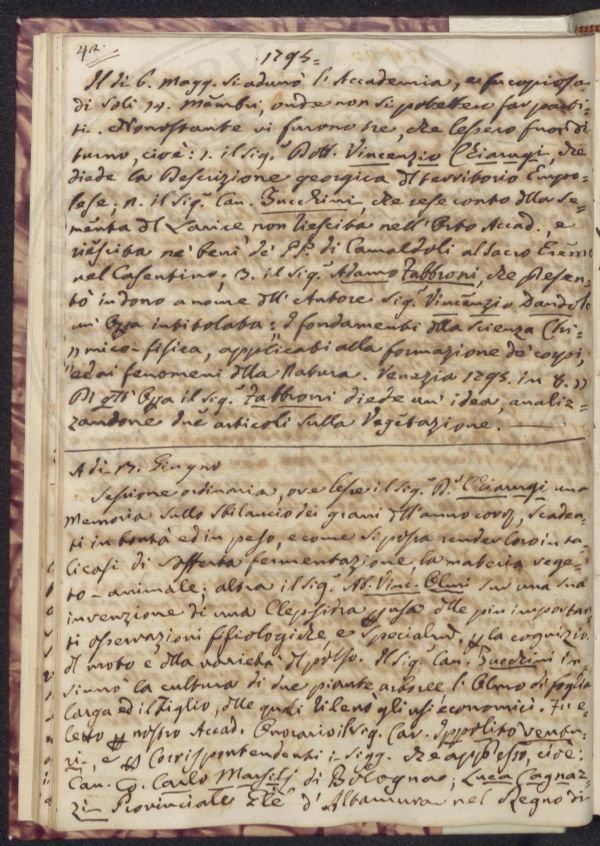 42.
1795.
Il dì 6. Magg. si adunò l'Accademia, e fu copiosa
di soli 14. Membri, onde non si potettero far parti-
ti. Nonostante vi furono tre, che lessero fuori di
turno, cioè: 1. il Sig.r Dott. Vincenzio Chiarugi, che
diede la Descrizione georgica del territorio Empo-
lese; 2. il Sig.r Can. Zucchini, che rese conto della se-
menta del Larice non riescita nell'Orto Accad., e
riescita ne' beni de' PP. di Camaldoli al Sacro Eremo
nel Casentino; 3. il Sig.r Adamo Fabbroni, che presen-
tò in dono a nome dell'Autore Sig.r Vincenzio Dandolo
un' Opa intitolata: I fondamenti della scienza Chi-
" mico-fisica, applicati alla formazione de' corpi,
" ed ai fenomeni della Natura. Venezia 1795. in 8. "
Di qta Opa il Sig.r Fabbroni diede un' idea, analiz-
zandone due articoli sulla Vegetazione.
A dì 3. Giugno
Sessione ordinaria, ove lesse il Sig.r D.r Chiarugi una
Memoria sullo sbilancio dei grani dell'anno , scaden-
ti in bontà ed in peso, e come si possa render loro in ta-
li casi di sofferta fermentazione, la materia vege-
to-animale; altra il Sig.r Ab. Vinc. Chini su una sua
invenzione di una Clepsidra p usa delle più importan-
ti osservazioni fisiologiche e specialm. p la cognizio.
del moto e della varietà del polso. Il Sig.r Can. Zucchini in-
sinuò la cultura di due piante arboree l'Olmo di foglia
larga ed il Tiglio, delle quali rilevò gli usi economici. Fu e-
letto p nostro Accad. Onorario il Sig. Cav. Ippolito Ventu-
ri, e p Corrispondenti i Sigg. che appresso, cioè:
Can. Co. Carlo Marsilj di Bologna; Luca Cagnaz-
zi Provinciale d'Altamura nel Regno di